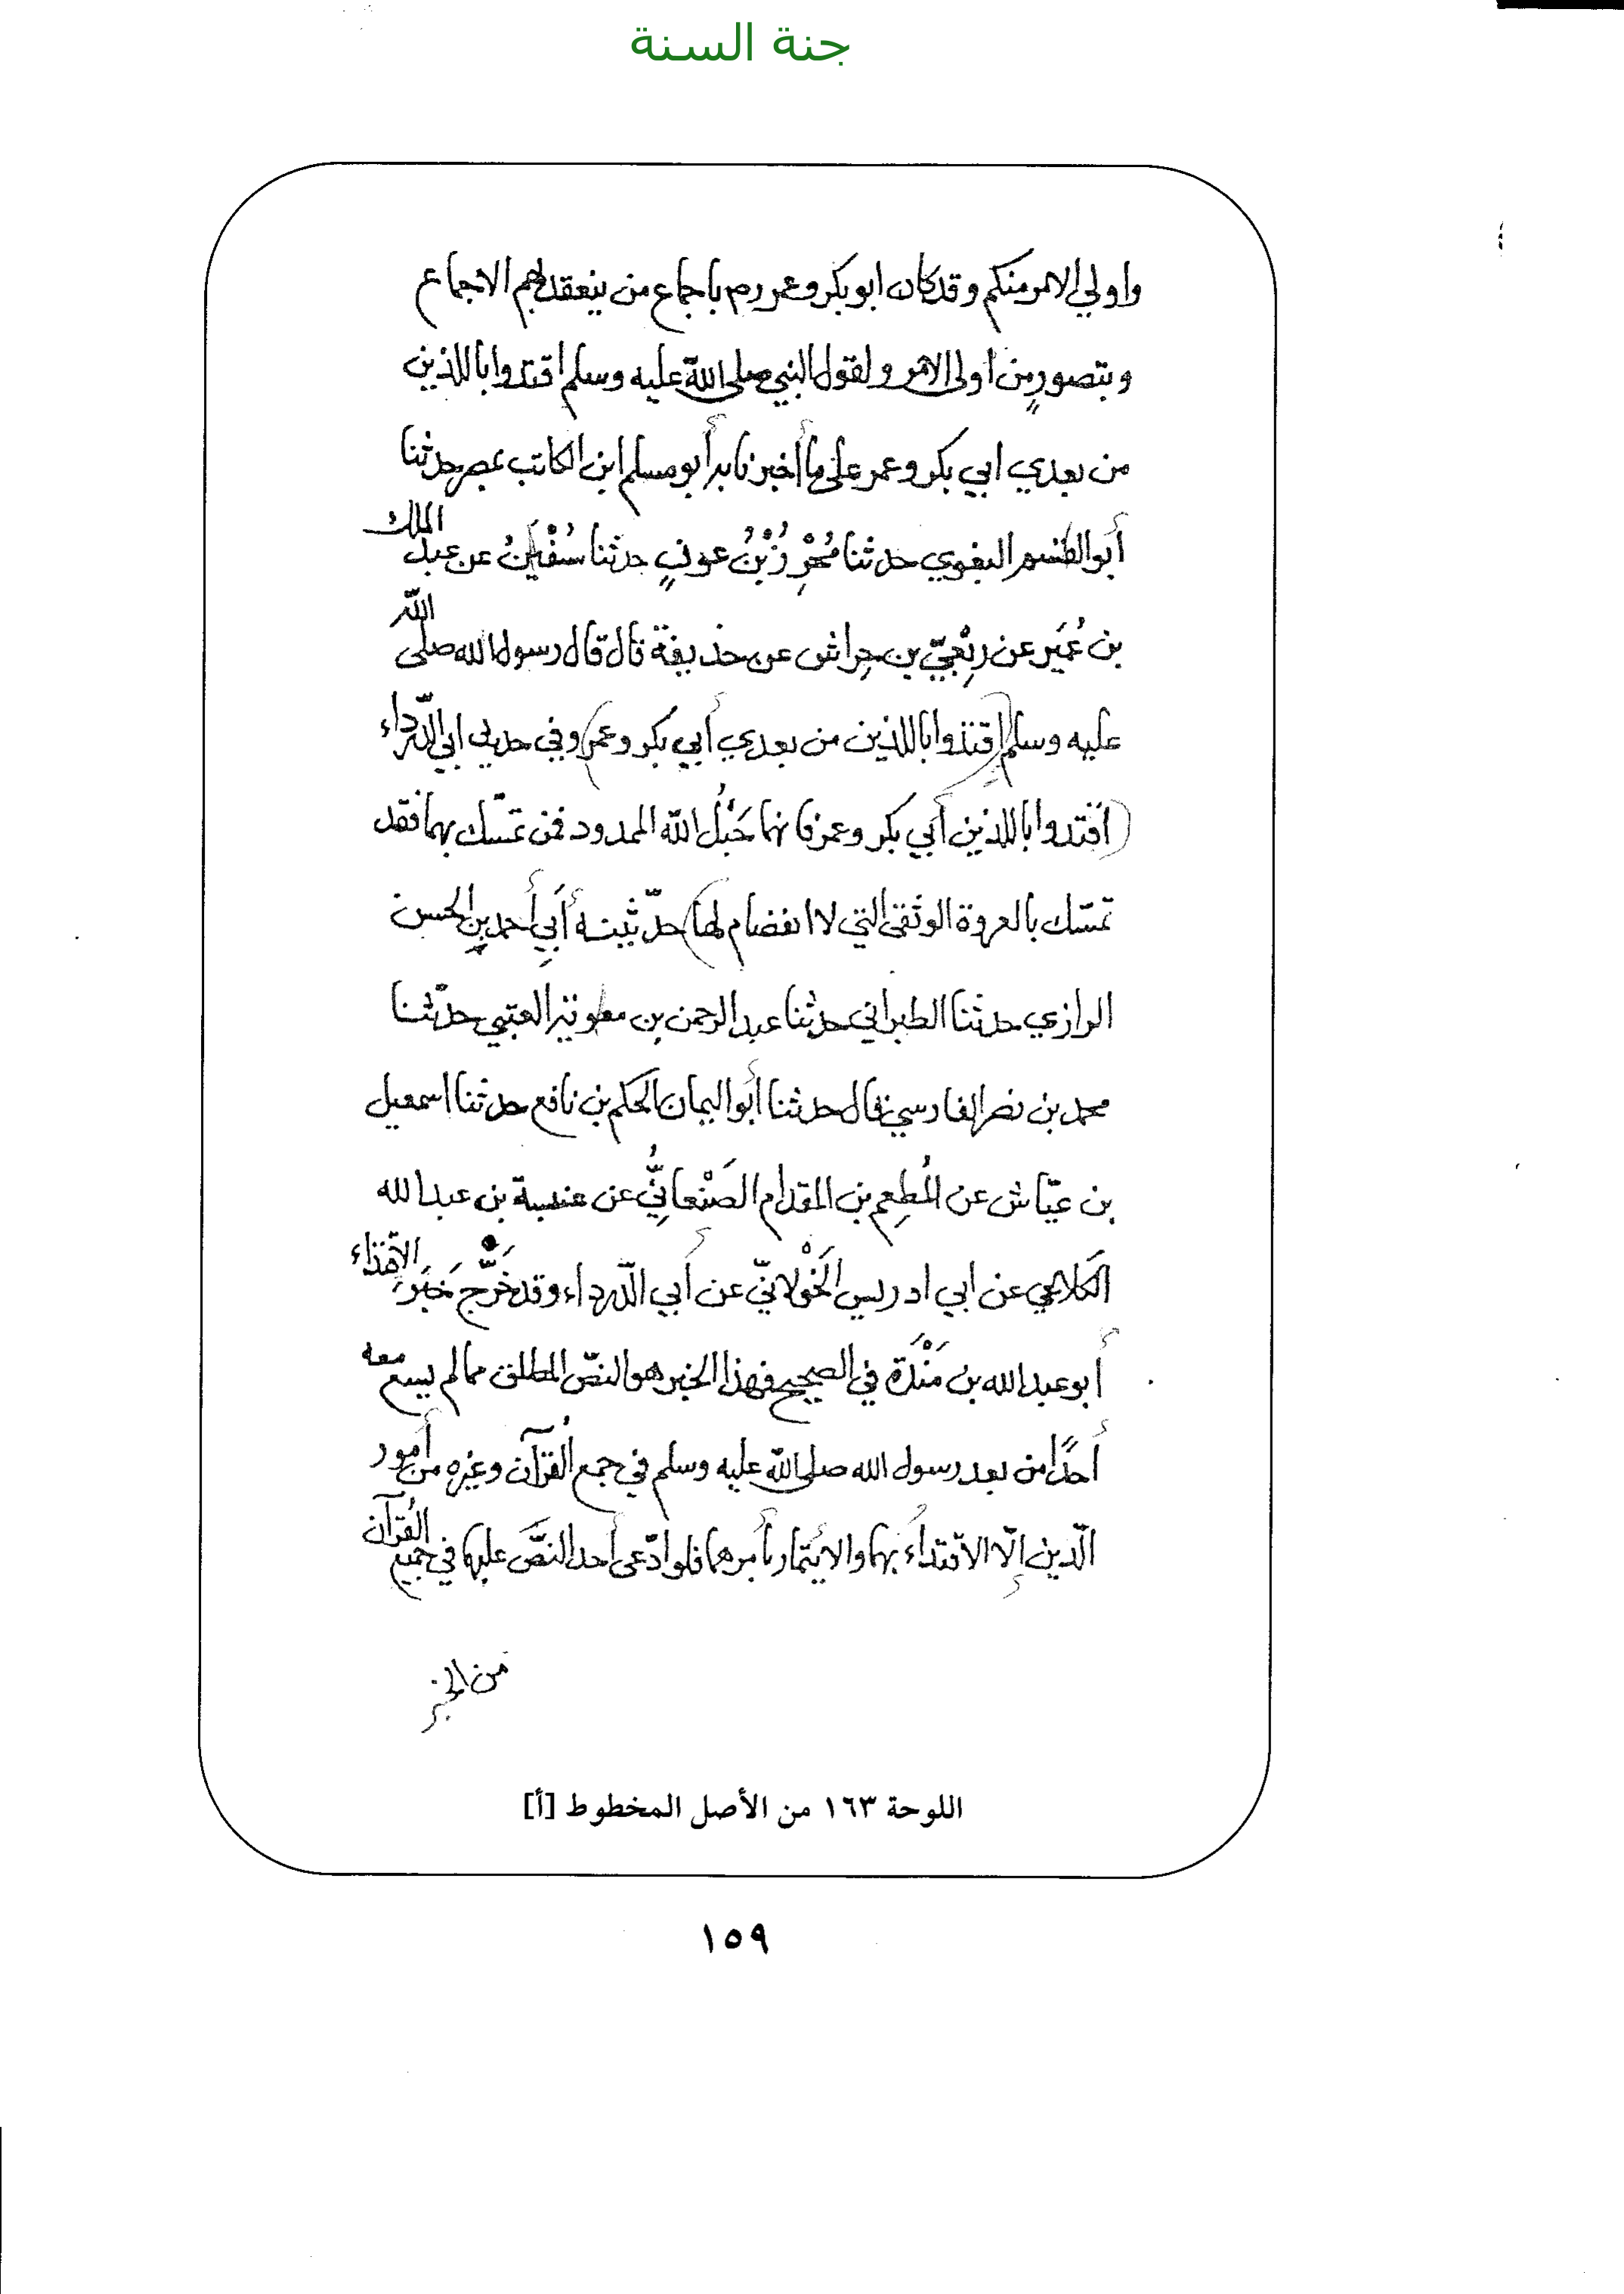 جنة السنة
واولي الامر منكم وقد كان ابو بكر وعمر رم باجماع من ينعقد بهم الاجماع
ويتصور من اولى الامر ولقول النبي صلى الله عليه وسلم اقتدوا باللذين
من بعدي ابي بكر وعمر على ما أخبرنا به أبو مسلم ابن الكاتب بمصر حدثنا
أبو القسم البغوي حدثنا مُحْرِزُ بْنُ عونٍ حدثنا سُفْيٰنُ عن عبد الملك
بن عُمَير عن رِبْعِيّ بن حِراش عن حذيفة قال قال رسول الله صلى الله
عليه وسلم (اقتدوا باللذين من بعدي أبي بكر وعمر) وفي حديث ابي الدّرداء
(اقتدوا باللذين أبي بكر وعمر فانهما حَبْلُ الله الممدود فمن تمسّك بهما فقد
تمسّك بالعروة الوثقى التي لا انفصام لها) حدّثنيه أَبِي أحمد بن الحسن
الرازي حدثنا الطبراني حدثنا عبد الرحمن بن معٰوية العتبي حدّثنا
محمد بن نصر الفارسي قال حدثنا أبو اليمان الحكم بن نافع حدثنا اسمعيل
بن عيّاش عن المُطعِم بن المقدام الصَنْعانِيُّ عن عنبسة بن عبد الله
الكَلاعي عن ابي ادريس الخَوْلانيّ عن أبي الدّرداء وقد خَرَّج خبَر الاقتداء
أبو عبد الله بن مَنْدَة في الصحيح فهذا الخبر هو النصّ المطلق مما لم يسع معه
أحدًا من بعد رسول الله صلى الله عليه وسلم في جمع القُرآن وغيره من أمور
الّدين إلّا الاقتداءُ بهما والائتمار بأمرهما فلو ادّعى أحد النصَّ عليهما في جميع القُرآن
من الخبر
اللوحة ١٦٣ من الأصل المخطوط [أ]
١٥٩